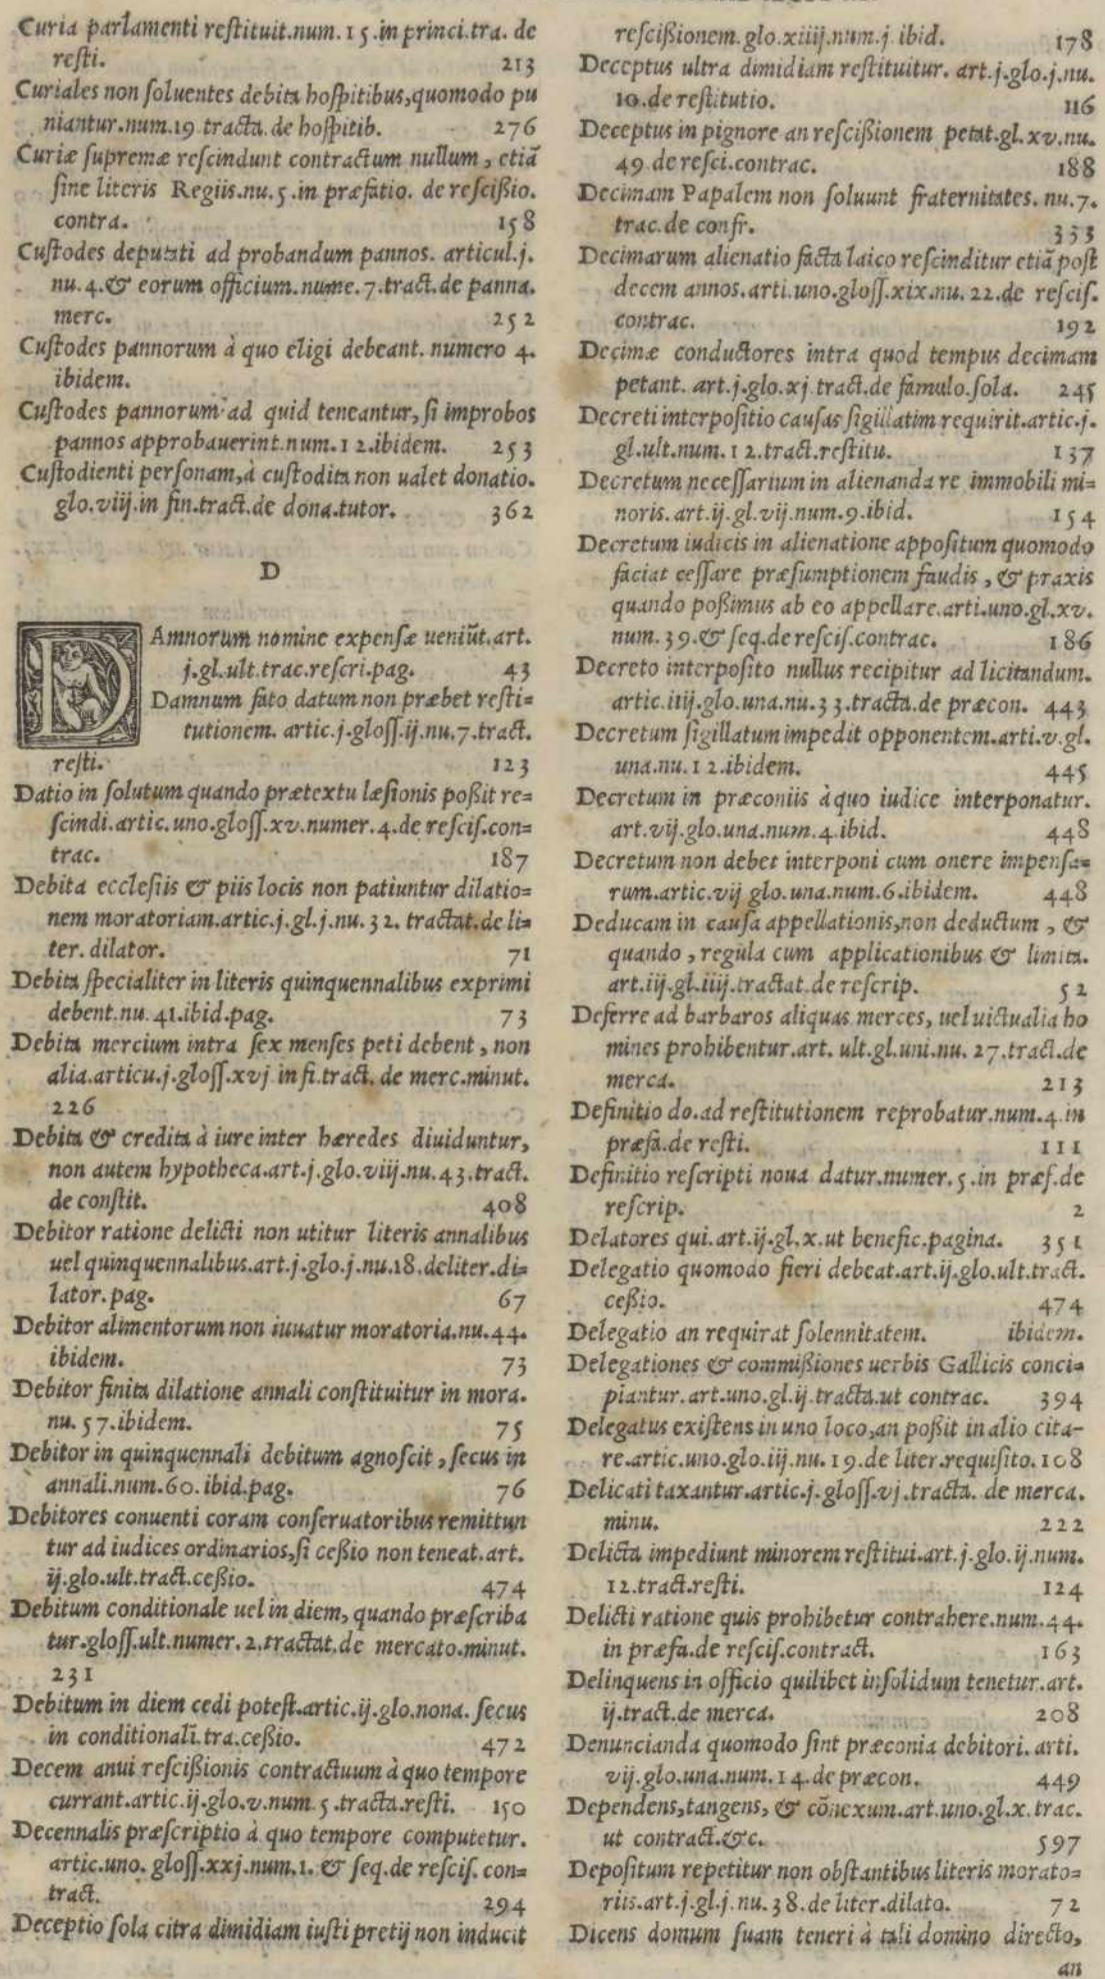 Curia parlamenti reſtituit.num.15.in princi.tra. de
reſti. 213
Curiales non ſoluentes debita hoſpitibus,quomodo pu
niantur.num.19.tracta.de hoſpitib. 276
Curiæ ſupremæ reſcindunt contractum nullum, etiā
ſine literis Regiis.nu.5.in præfatio. de reſciſsio.
contra. 158
Cuſtodes deputati ad probandum pannos. articul.j.
nu.4.& eorum officium.nume.7.tract.de panna.
merc. 252
Cuſtodes pannorum à quo eligi debeant. numero 4.
ibidem.
Cuſtodes pannorum ad quid teneantur, ſi improbos
pannos approbauerint.num.12.ibidem. 253
Cuſtodienti perſonam,à cuſtodita non ualet donatio.
glo.viij.in fin.tract.de dona.tutor. 362
D
DAmnorum nomine expenſæ ueniūt.art.
j.gl.ult.trac.reſcri.pag. 43
Damnum fato datum non præbet reſti=
tutionem. artic.j.gloſſ.ij.nu.7.tract.
reſti. 123
Datio in ſolutum quando prætextu læſionis poßit re=
ſcindi.artic.uno.gloſſ.xv.numer.4.de reſciſ.con=
trac. 187
Debita eccleſiis & piis locis non patiuntur dilatio=
nem moratoriam.artic.j.gl.j.nu.32. tractat.de li=
ter.dilator. 71
Debita ſpecialiter in literis quinquennalibus exprimi
debent.nu.41.ibid.pag. 73
Debita mercium intra ſex menſes peti debent, non
alia.articu.j.gloſſ.xvj in fi.tract. de merc.minut.
226
Debita & credita à iure inter hæredes diuiduntur,
non autem hypotheca.art.j.glo.viij.nu.43.tract.
de conſtit. 408
Debitor ratione delicti non utitur literis annalibus
uel quinquennalibus.art.j.glo.j.nu.18.deliter.di=
lator.pag. 67
Debitor alimentorum non iuuatur moratoria.nu.44.
ibidem. 73
Debitor finita dilatione annali conſtituitur in mora.
nu.57.ibidem. 75
Debitor in quinquennali debitum agnoſcit, ſecus in
annali.num.60.ibid.pag. 76
Debitores conuenti coram conſeruatoribus remittun
tur ad iudices ordinarios,ſi ceßio non teneat.art.
ij.glo.ult.tract.ceßio. 474
Debitum conditionale uel in diem, quando præſcriba
tur.gloſſ.ult.numer.2.tractat.de mercato.minut.
231
Debitum in diem cedi poteſt.artic.ij.glo.nona. ſecus
in conditionali.tra.ceßio. 472
Decem anui reſcißionis contractuum à quo tempore
currant.artic.ij.glo.v.num.5.tracta.reſti. 150
Decennalis præſcriptio à quo tempore computetur.
artic.uno. gloſſ.xxj.num.1. & ſeq.de reſciſ. con=
tract. 294
Deceptio ſola citra dimidiam iuſti pretij non inducit
reſcißionem.glo.xiiij.num.j ibid. 178
Deceptus ultra dimidiam reſtituitur. art.j.glo.j.nu.
10.de reſtitutio. 116
Deceptus in pignore an reſcißionem petat.gl.xv.nu.
49 de reſci.contrac. 188
Decimam Papalem non ſoluunt fraternitates. nu.7.
trac.de confr. 333
Decimarum alienatio facta laico reſcinditur etiā poſt
decem annos.arti.uno.gloſſ.xix.nu.22.de reſciſ.
contrac. 192
Decimæ conductores intra quod tempus decimam
petant. art.j.glo.xj.tract.de famulo.ſola. 245
Decreti interpoſitio cauſas ſigillatim requirit.artic.j.
gl.ult.num.12.tract.reſtitu. 137
Decretum neceſſarium in alienanda re immobili mi=
noris.art.ij.gl.vij.num.9.ibid. 154
Decretum iudicis in alienatione appoſitum quomodo
faciat ceſſare præſumptionem faudis, & praxis
quando poßimus ab eo appellare.arti.uno.gl.xv.
num.39.& ſeq.de reſciſ.contrac. 186
Decreto interpoſito nullus recipitur ad licitandum.
artic.iiij.glo.una.nu.33.tracta.de præcon. 443
Decretum ſigillatum impedit opponentem.arti.v.gl.
una.nu.12.ibidem. 445
Decretum in præconiis à quo iudice interponatur.
art.vij.glo.una.num.4.ibid. 448
Decretum non debet interponi cum onere impenſa=
rum.artic.vij glo.una.num.6.ibidem. 448
Deducam in cauſa appellationis,non deductum, &
quando, regula cum applicationibus & limita.
art.iij.gl.iiij.tractat.de reſcrip. 52
Deferre ad barbaros aliquas merces, uel uictualia ho
mines prohibentur.art. ult.gl.uni.nu. 27.tract.de
merca. 213
Definitio do.ad reſtitutionem reprobatur.num.4.in
præfa.de reſti. 111
Definitio reſcripti noua datur.numer.5.in præf.de
reſcrip. 2
Delatores qui.art.ij.gl.x.ut benefic.pagina. 351
Delegatio quomodo fieri debeat.art.ij.glo.ult.tract.
ceßio. 474
Delegatio an requirat ſolennitatem. ibidem.
Delegationes & commißiones uerbis Gallicis conci=
piantur.art.uno.gl.ij.tracta.ut contrac. 394
Delegatus exiſtens in uno loco,an poßit in alio cita-
re.artic.uno.glo.iij.nu.19.de liter.requiſito. 108
Delicati taxantur.artic.j.gloſſ.vj.tracta. de merca.
minu. 222
Delicta impediunt minorem reſtitui.art.j.glo.ij.num.
12.tract.reſti. 124
Delicti ratione quis prohibetur contrahere.num.44.
in præfa.de reſciſ.contract. 163
Delinquens in officio quilibet inſolidum tenetur.art.
ij.tract.de merca. 208
Denuncianda quomodo ſint præconia debitori. arti.
vij.glo.una.num.14.de præcon. 449
Dependens,tangens, & cōnexum.art.uno.gl.x.trac.
ut contract.&c. 597
Depoſitum repetitur non obſtantibus literis morato=
riis.art.j.gl.j.nu.38.de liter.dilato. 72
Dicens domum ſuam teneri à tali domino directo,
an